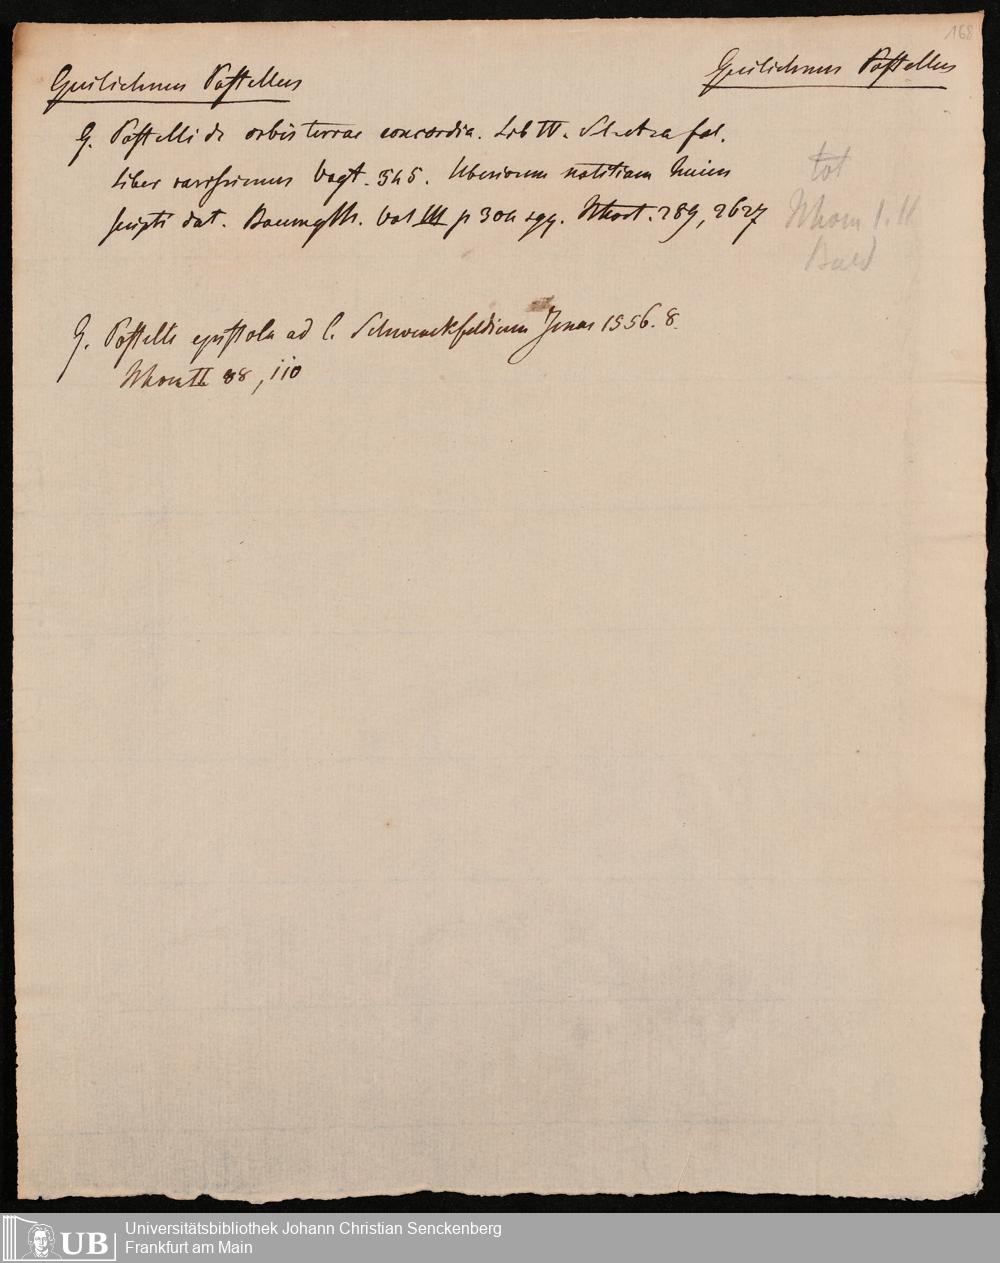 168
Guilielmus Postellus
Guilielmus Postellus
G. Postelli de orbis terrae concordia. Lib IV. fol.
liber rarissimus Vogt. 545. Uberiorem notitiam huius
scripti dat. Baumgtn. Vol III p 304 sqq. 289, 2627
tot
I. II
G. Postelli epistola ad C. Schwenckfeldium Jenae 1556. 8.
II 88, 110
UB
Universitätsbibliothek Johann Christian Senckenberg
Frankfurt am Main